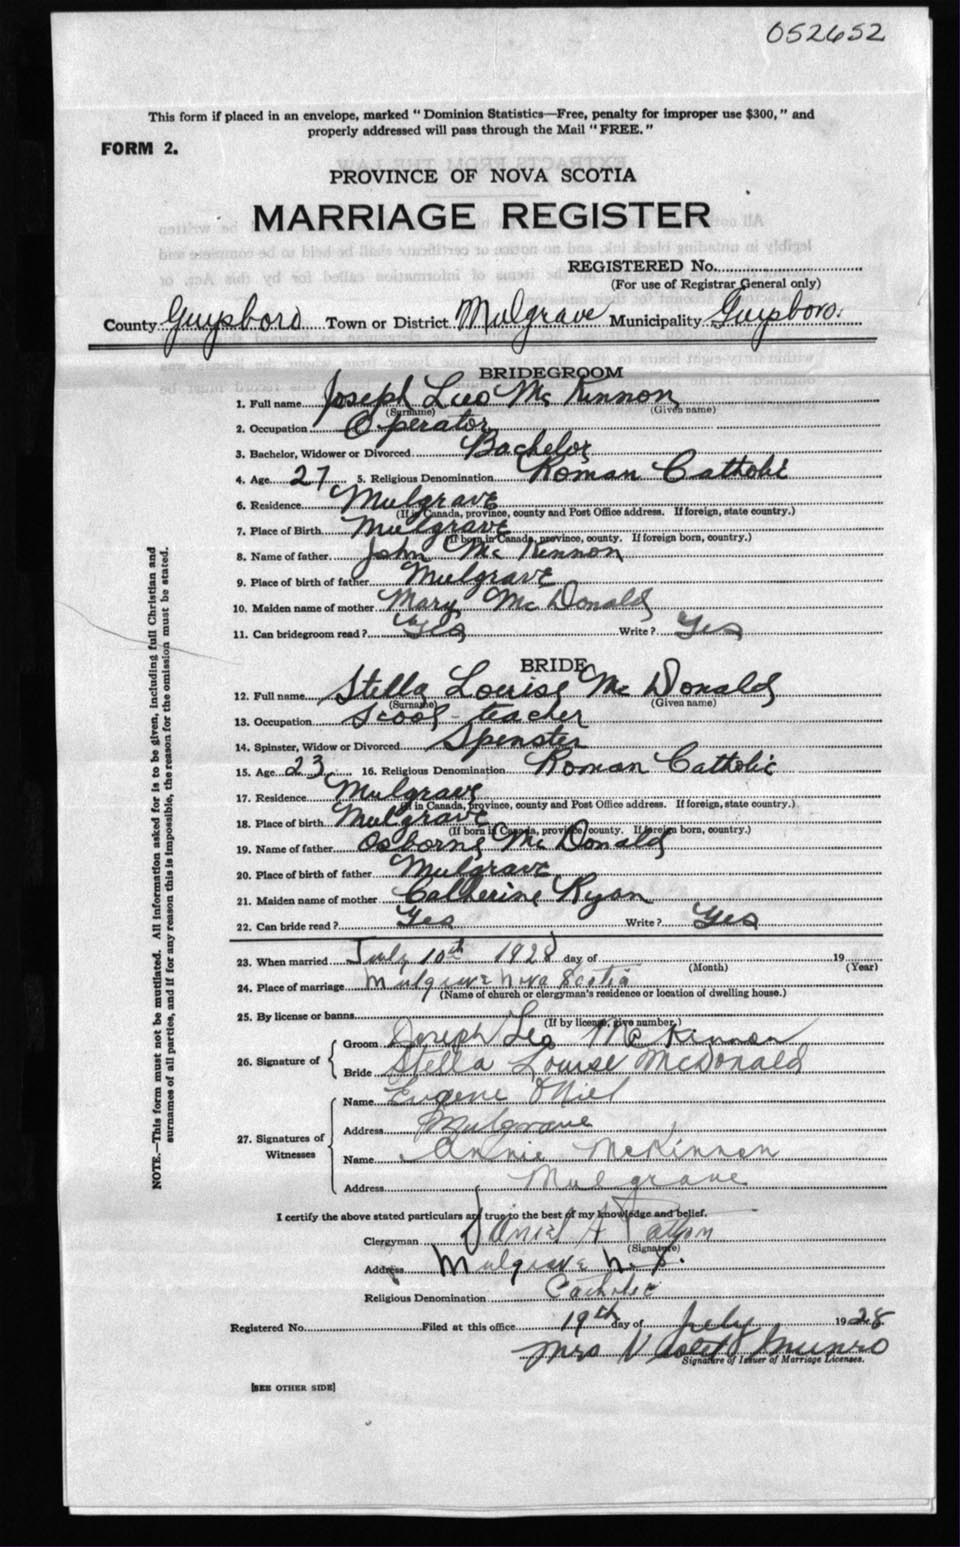 052652
This form if placed in an envelope, marked "Dominion Statistics—Free, penalty for improper use $300," and
properly addressed will pass through the Mail "FREE."
FORM 2.
PROVINCE OF NOVA SCOTIA
MARRIAGE REGISTER
REGISTERED No.
(For use of Registrar General only)
County Guysboro Town or District Mulgrave Municipality Guysboro.
BRIDEGROOM
1. Full name Joseph Leo McKinnon
(Surname) (Given name)
2. Occupation Operator
3. Bachelor, Widower or Divorced Bachelor
4. Age 27 5. Religious Denomination Roman Cattolic
6. Residence Mulgrave
(If in Canada, province, county and Post Office address. If foreign, state country.)
7. Place of Birth Mulgrave
(If born in Canada, province, county. If foreign born, country.)
8. Name of father John McKinnon
9. Place of birth of father Mulgrave
10. Maiden name of mother Mary McDonald
11. Can bridegroom read? Yes Write? Yes
BRIDE
12. Full name Stella Louise McDonald
(Surname) (Given name)
13. Occupation Scool-teacher
14. Spinster, Widow or Divorced Spenster
15. Age 23 16. Religious Denomination Roman Catholic
17. Residence Mulgrave
(If in Canada, province, county and Post Office address. If foreign, state country.)
18. Place of birth Mulgrave
(If born in Canada, province, county. If foreign born, country.)
19. Name of father Osborne McDonald
20. Place of birth of father Mulgrave
21. Maiden name of mother Catherine Ryan
22. Can bride read? Yes Write? Yes
23. When married July 10th 1928 day of 19
(Month) (Year)
24. Place of marriage Mulgrave Nova Scotia
(Name of church or clergyman's residence or location of dwelling house.)
25. By license or banns
(If by license, give number.)
26. Signature of
Groom Joseph Leo McKinnon
Bride Stella Louise McDonald
27. Signatures of Witnesses
Name Eugene O'Niel
Address Mulgrave
Name Annie McKinnon
Address Mulgrave
I certify the above stated particulars are true to the best of my knowledge and belief.
Clergyman Daniel A
(Signature)
Address Mulgrave N.S.
Religious Denomination Catholic
Registered No. Filed at this office 19th day of July 1928
Mrs Violet Munro
Signature of Issuer of Marriage Licenses.
[SEE OTHER SIDE]
NOTE.—This form must not be mutilated. All information asked for is to be given, including full Christian and
surnames of all parties, and if for any reason this is impossible, the reason for the omission must be stated.